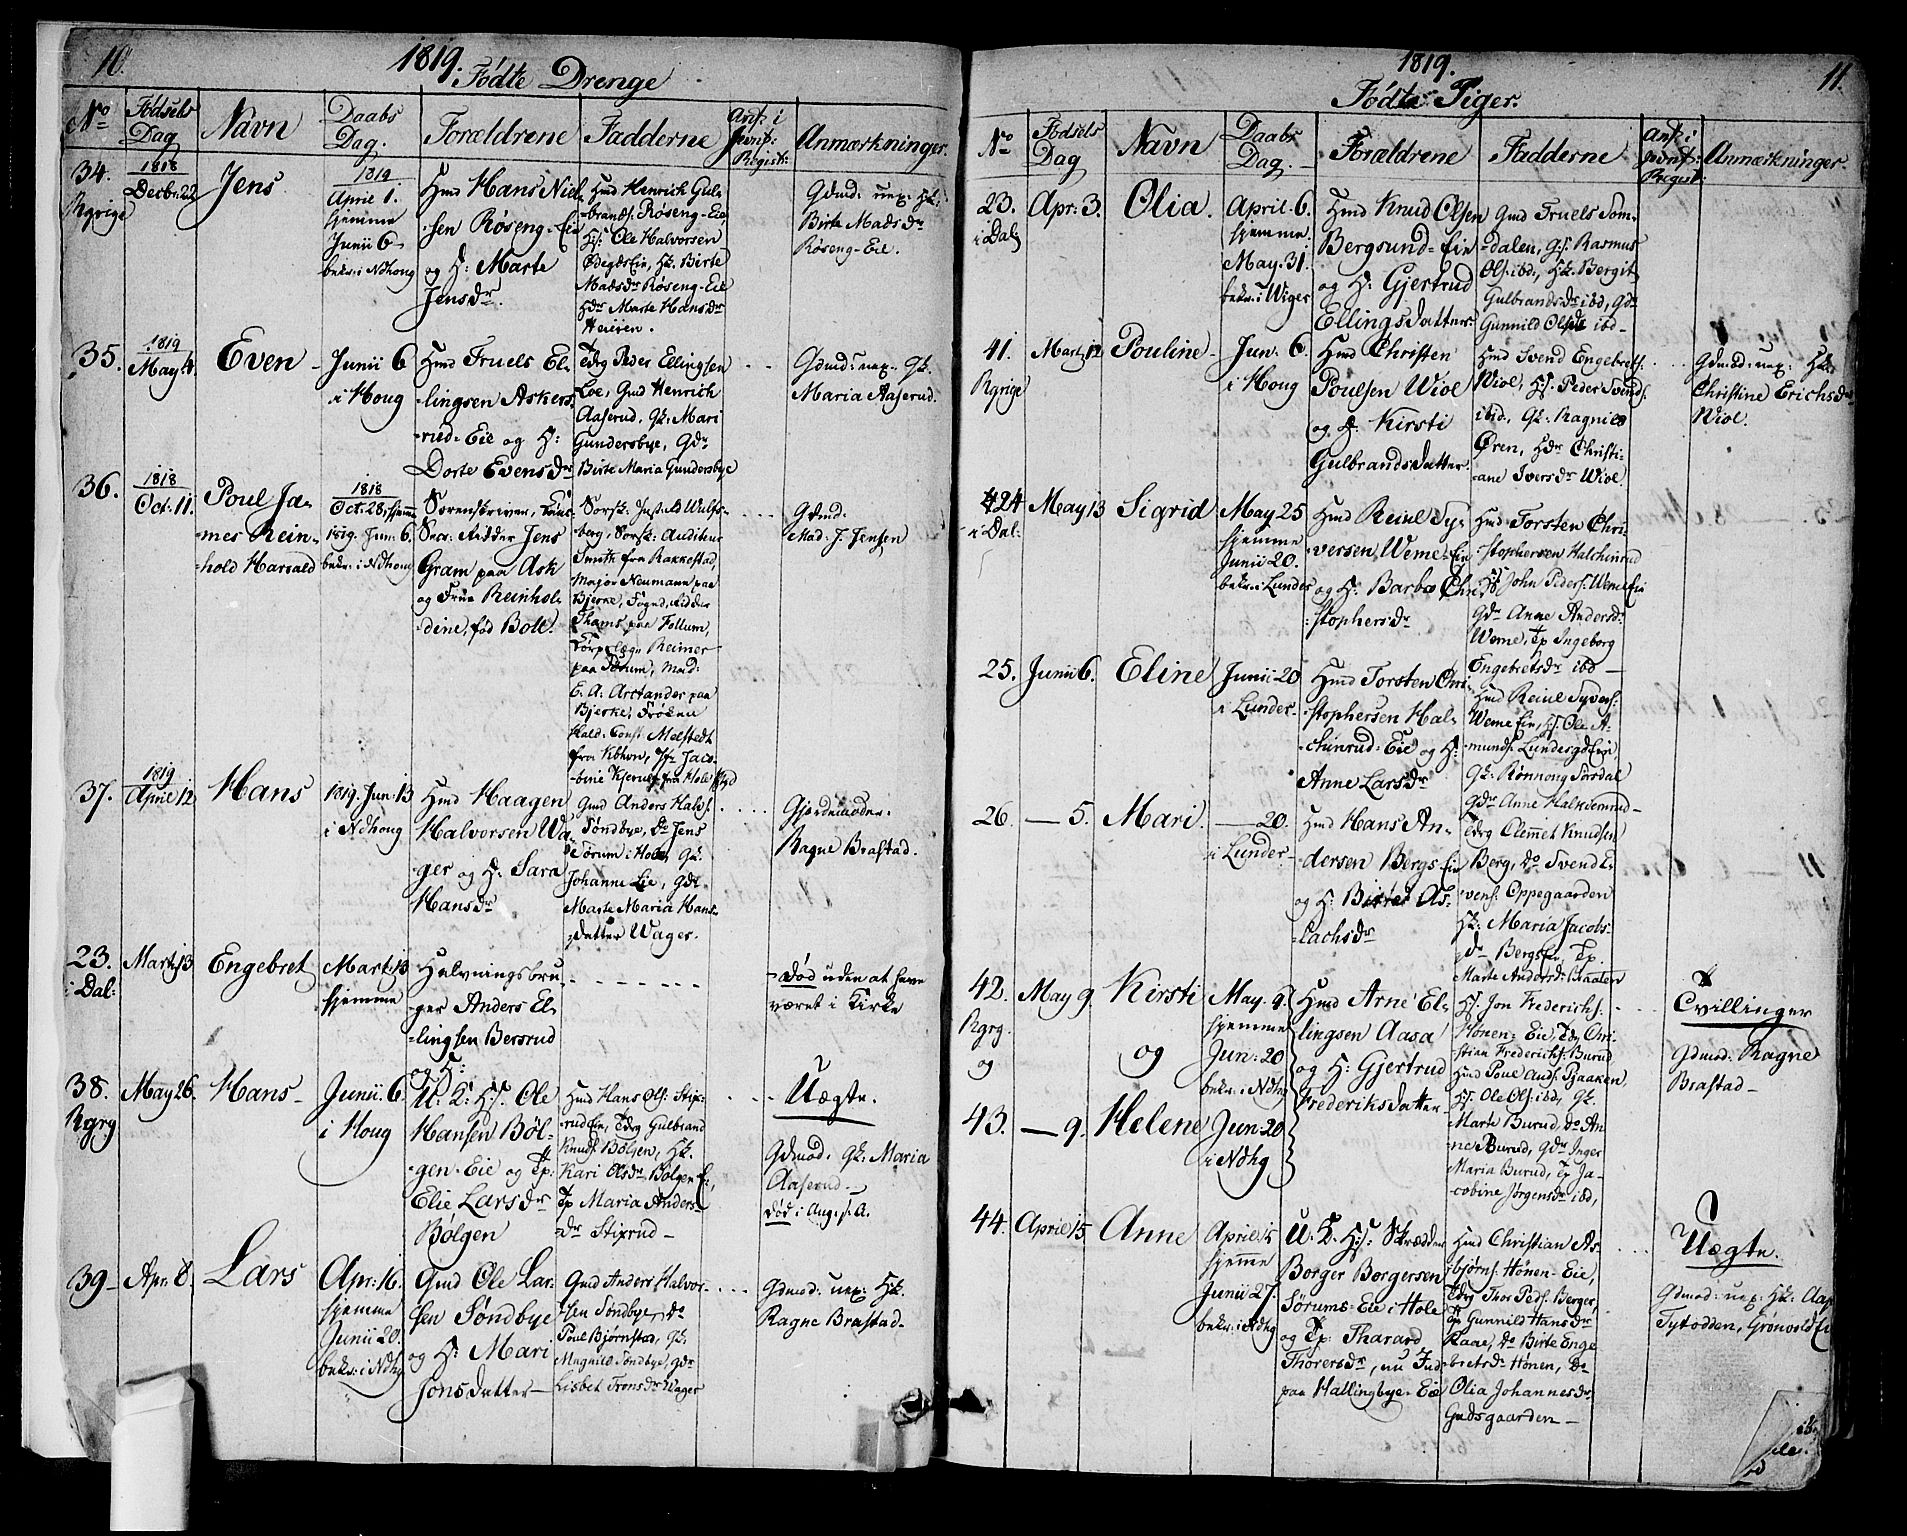 10.
1819.
Fødte Drenge
No
Fødsels Dag
Navn
Daabs Dag.
Forældrene
Fadderne
Anf: i Jevnf: Regist:
Anmærkninger.
34.
Rgrige
1818
Decbr: 22
Jens
1819
April 1.
hjemme
Junii 6
bekr: i Ndhoug
Hmd Hans Niel-
sen Røseng-Eie
og H: Marte
Jensdr.
Hmd Henrich Gul-
brands: Røseng-Eie
HS: Ole Halvorsen
ØdegdsEie, Hk. Birte
Madsdr Røseng-Eie
Hdr Marte Hansdr
Heieren.
Gdmd: uex: Hk:
Birte Madsdr
Røseng-Eie.
35.
1819
May: 4
Even
Junii 6
i Houg
Hmd Truels El-
lingsen Askers-
rud-Eie og H:
Dorte Evensdr
Tdrg Peder Ellingsen
Loe, Gmd Henrich
Aaserud, Gk: Mari
Gundersbye, Gdr
Birte Maria Gundersbye
Gdmd: uex. Gk.
Maria Aaserud.
36.
1818
Oct: 11.
Poul Ja-
mes Rein-
hold Harald
1818
Oct: 28, hjemme
1819. Jun: 6.
bekr: i Ndhoug
Sorenskriver, Cans-
Sea: Ridder Jens
Gram paa Ask
og Frue Reinhol-
dine, fød Boll.
Sorsk: Just: A Wulfs-
berg, Sorsk: Auditeur
Smith fra Rakkestad,
Major Neumann paa
Bjerke, Foged, Ridder
Thams paa Follum,
Corpslæge Reimer
paa Tårum, Mad:
E. A. Arctander paa
Bjerke, Frøken
Hald: Const: Melstedt
fra Kbhvn, Jfr Jaco-
bine Kjerulf fra Hole
Gdmd:
Mad: J. Jensen
37.
1819
April 12
Hans
1819. Jun: 13
i Ndhoug
Hmd Haagen
Halvorsen Wa-
ger og H: Sara
Hansdr
Gmd Anders Halvs:
Søndbye, Do Jens
Sørum i Hole, Gk.
Johanne Lie, Gdr.
Marte Maria Hans-
datter Wager.
Gjordemoder:
Ragne Brastad.
23.
i Dal:
Mart: 13
Engebret
Mart: 13
hjemme
Halvningsbru-
ger Anders El-
lingsen Bersrud
og H:
Død uden at have
været i Kirke
38.
Rgrg
May 26.
Hans
Junii 6.
i Houg
U. K: HS: Ole
Hansen Bøl-
gen-Eie og Tp:
Elie Larsdr
Bølgen
Hmd Hans Ols: Stix-
rudEie, Tdrg Gulbrand
Knuds: Bølgen, Hk.
Kari Olsdr Bølgen Ei,
Tp Maria Anders-
dr Stixrud
Uægte.
Gdmod: Gk: Maria
Aaserud.
Død i Aug: s: A.
39
Apr: 8.
Lars
Apr: 16.
hjemme
Junii 20
bekr: i Ndhg
Gmd Ole Lar-
sen Søndbye
og H: Mari
Jonsdatter
Gmd Anders Halvor-
sen Søndbye, Do
Poul Bjørnstad, Gk:
Magnild Søndbye, Gdr
Lisbet Tronsdr Wager
Gdmod: uex: Hk.
Ragne Brastad.
1819.
11.
Fødte Piger.
No
Fødsels Dag
Navn
Daabs Dag.
Forældrene
Fadderne
Anf: i Jevnf: Regist:
Anmærkninger.
23.
i Dal
Apr: 3.
Olia.
April. 6.
hjemme.
May. 31.
bekr: i Wiger
Hmd Knud Olsen
Bergsund-Eie
og H: Gjertrud
Ellingsdatter
Gmd Truels Som-
dalen, GS: Rasmus
Ols: ibd:, Hk. Bergit
Gulbrandsdr ibd, Gdr
Gunnild Olsdr ibd
41.
Rgrige
Mart: 12
Pouline
Jun: 6.
i Houg
Hmd Christen
Poulsen Wiol
og H: Kirsti
Gulbrandsdatter
Hmd Svend Engebrets:
Wiol, HS: Peder Svends:
ibid, Gk: Ragnild
Øren, Hdr Christi-
ane Iversdr Wiol
Gdmod: uex: Hk
Christine Erichsdr
Wiol.
24
i Dal:
May 13
Sigrid
May 25
hjemme
Junii 20.
bekr: i Lunder
Hmd Reiul Sy-
versen Weme-Eie
og H: Barbro Chri-
stophersdr
Hmd Torsten Chri-
stophersen Halchinrud
HS John Peders: WemeEie
Gdr Anne Andersd:
Weme, Tp Ingeborg
Engebretsdr ibd
25.
Junii 6.
Eline
Junii 20
i Lunder
Hmd Torsten Chri-
stophersen Hal-
chinrud-Eie og H:
Anne Larsdr
Hmd Reiul Syvers:
WemeEie, HS: Ole A-
munds: LundersgdEie
Gk: Rønnoug Sørdal
Gdr Anne Halkdemrud
26.
5.
Mari.
20.
i Lunder
Hmd Hans An-
dersen Bergs-Eie
og H: Birret As-
lachsdr
Tdrg Clemet Knudsen
Berg, Do Svend E-
vens: Oppegaarden
Hk: Maria Jacobs-
dr BergsEie, Tp.
Marte Andersdr Braaten
42.
Rgrg.
og
May 9.
Kirsti
og
May. 9.
hjemme
Jun: 20
bekr: i Ndhg
Hmd Arne El-
lingsen Aasa
og H: Gjertrud
Frederiksdatter
HS: Jon Frederichs:
Hønen-Eie, Tdrg Chri-
stian Frederichs: Burud
Hmd Poul Ands: Raaken,
HS: Ole Ols: ibd, Gk.
Marte Burud, Do An-
ne Burud, Gdr Inger
Maria Burud, Tp Ja-
cobine Jørgensdr ibd,
Tvillinger
Gdmod: Ragne
Brastad
43.
9.
Helene
Jun: 20
i Ndhg
44.
April 15
Anne
April 15
hjemme
Junii 27.
bekr: i Ndhg
U. K. HS: Skrædder
Borger Borgersen
Sørums-Eie i Hole
og Tp: Tharard
Thorersdr, nu Ind
paa Hallingbye-Eie
Hmd Christian As-
bjørns: Hønen-Eie,
Tdrg Thor Peds: Berger,
Tp Gunnild Hansdr
Raae, Do Birte Enge-
bretsdr Hønen, Do
Olia Johannesdr
Gudsgaarden
Uægte.
Gdmod: uex: Hk: Aase
Tytodden, GrønvoldEie